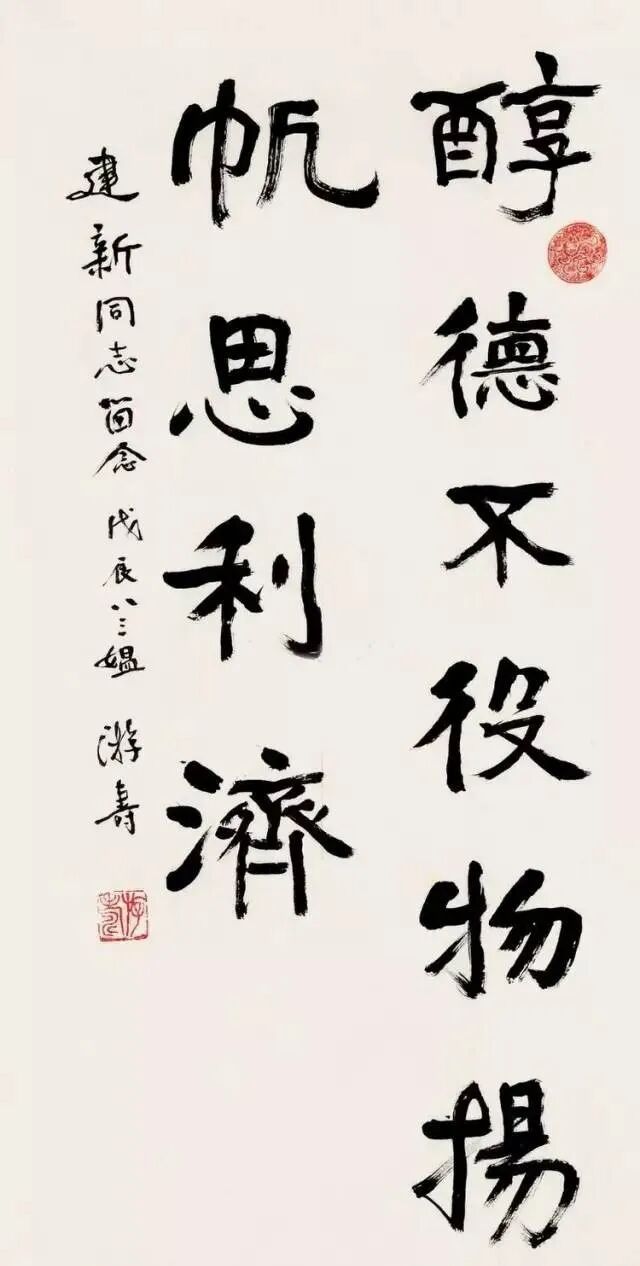 醇德不役物揚
帆思利濟
建新同志留念 戊辰八三媪 游壽